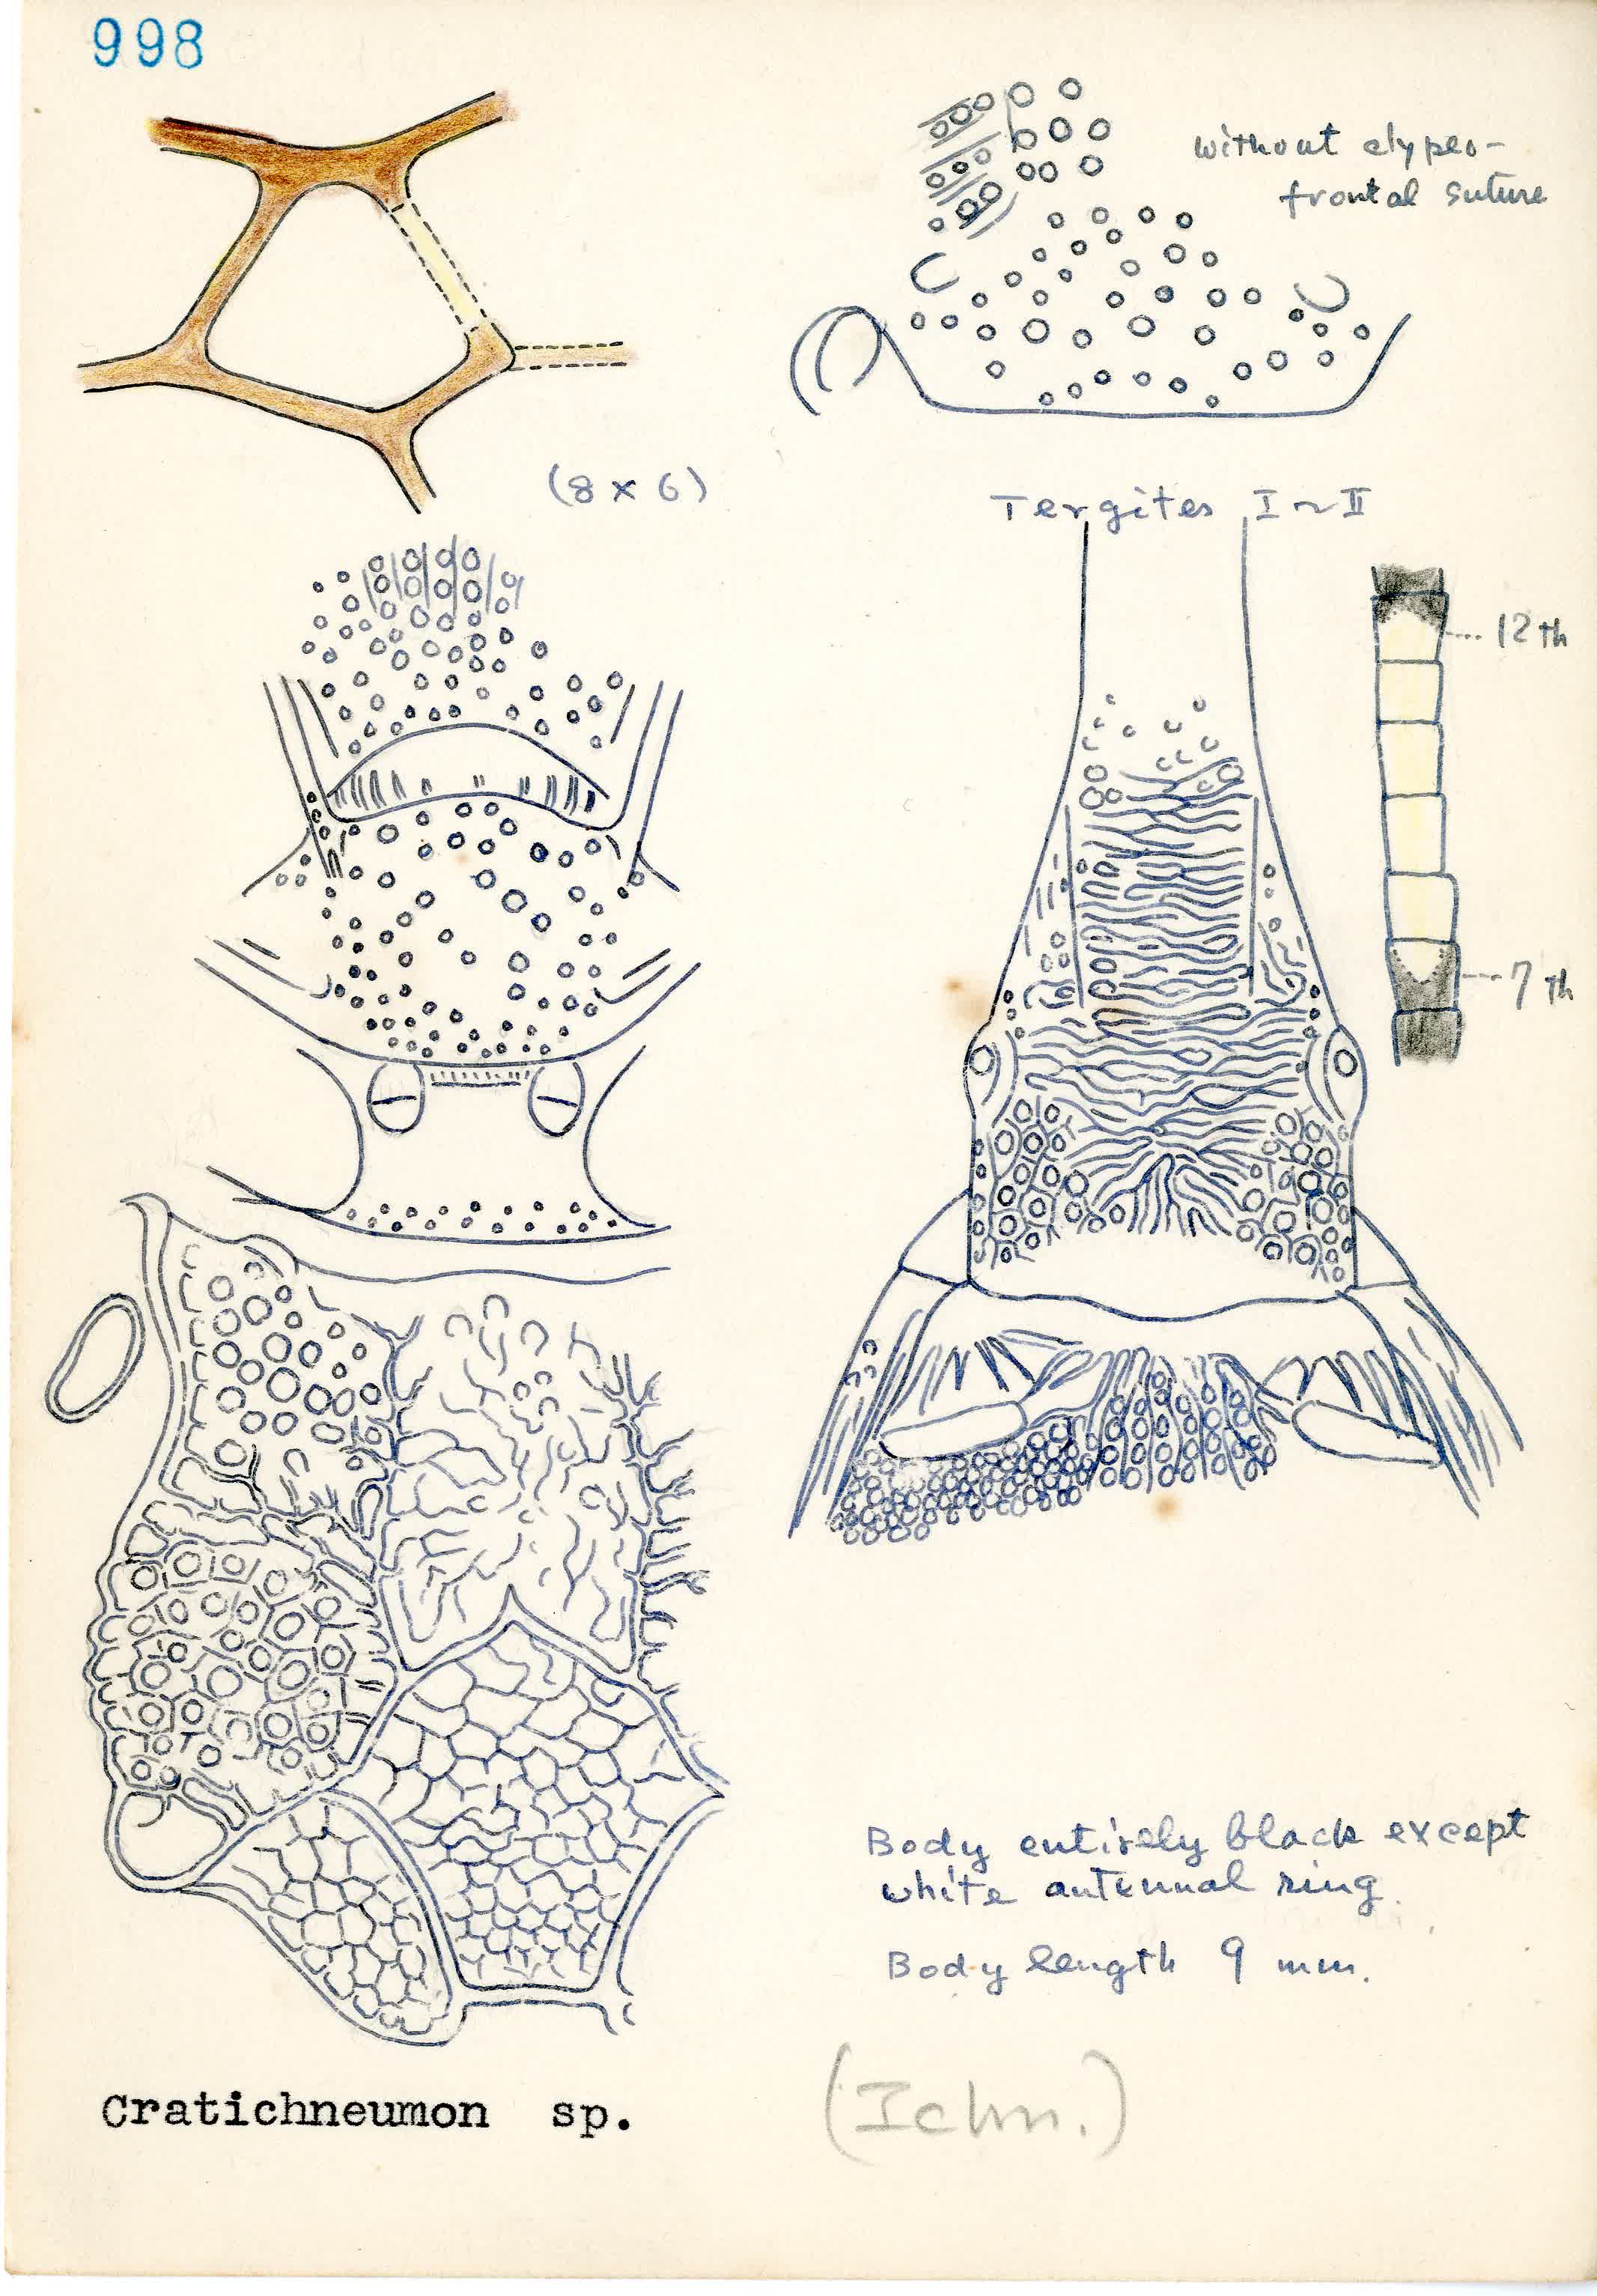 998
without clypeo-
frontal suture
(8 x 6)
Tergites I ~ II
12 th
7 th
Body entirely black except
white antennal ring.
Body length 9 mm.
Cratichneumon sp.
(Ichn.)